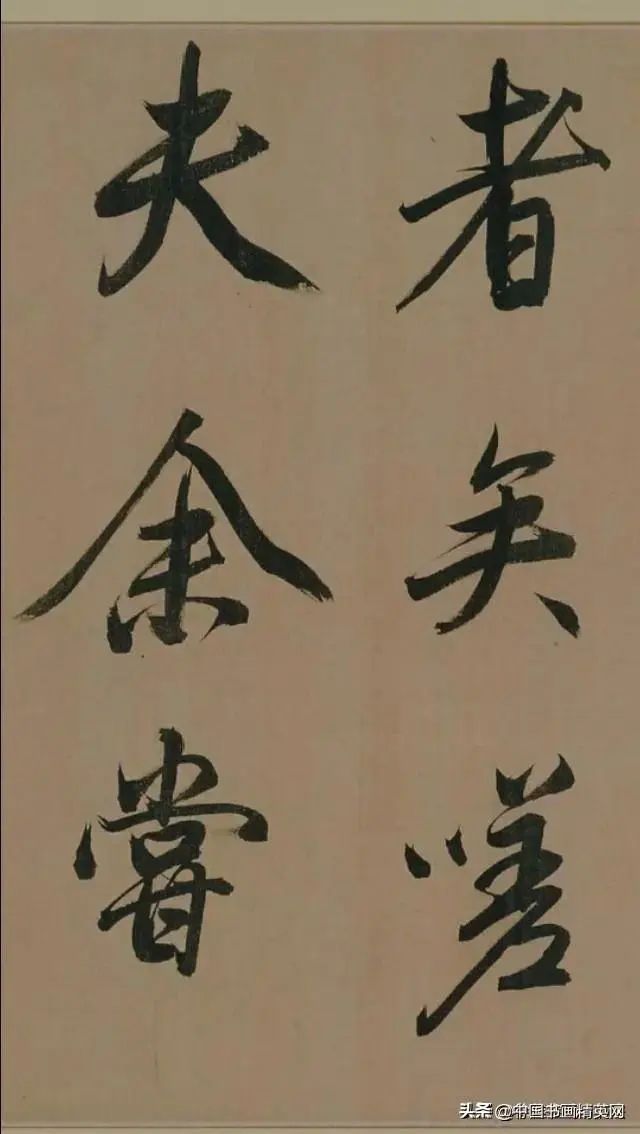 者矣嗟
夫余嘗
头条 @中国书画精英网